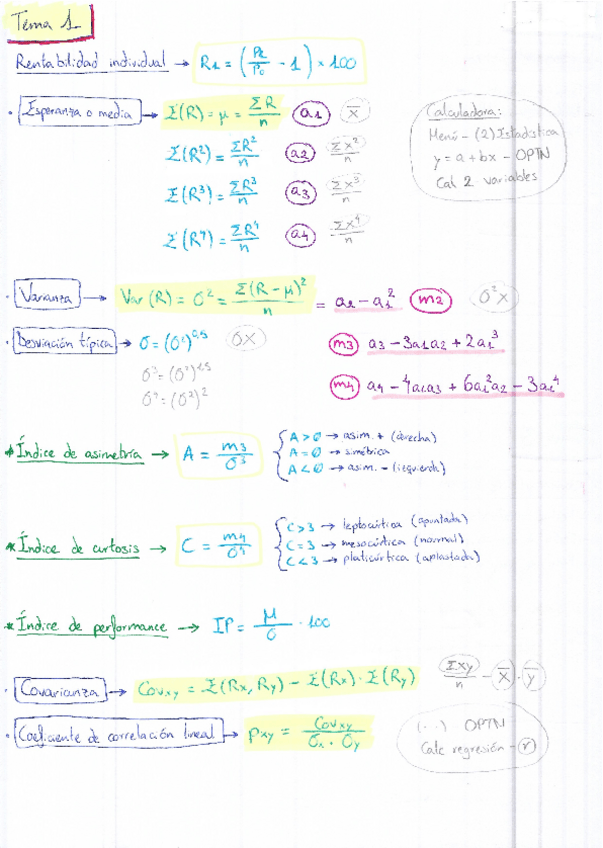 Tema 1
Rentabilidad individual → R1 = (Pt/P0 - 1) × 100
· Esperanza o media → E(R) = μ = ΣR/n (a1) x̄
E(R²) = ΣR²/n (a2) Σx²/n
E(R³) = ΣR³/n (a3) Σx³/n
E(R⁴) = ΣR⁴/n (a4) Σx⁴/n
Calculadora:
Menú - (2) Estadística
y = a + bx - OPTN
Cal 2 variables
· Varianza → Var (R) = σ² = Σ(R - μ)²/n = a2 - a1² (m2) σ²x
· Desviación típica → σ = (σ²)^0,5 σx
σ³ = (σ²)^1,5
σ⁴ = (σ²)²
(m3) a3 - 3a1a2 + 2a1³
(m4) a4 - 4a1a3 + 6a1²a2 - 3a1⁴
* Índice de asimetría → A = m3/σ³
A > 0 → asim. + (derecha)
A = 0 → simétrica
A < 0 → asim. - (izquierda)
* Índice de curtosis → C = m4/σ⁴
C > 3 → leptocúrtica (apuntada)
C = 3 → mesocúrtica (normal)
C < 3 → platicúrtica (aplastada)
* Índice de performance → IP = μ/σ · 100
· Covarianza → Covxy = E(Rx, Ry) - E(Rx) · E(Ry) Σxy/n - x̄ · ȳ
· Coeficiente de correlación lineal → ρxy = Covxy/σx · σy
(...) OPTN
Calc regresión - (r)